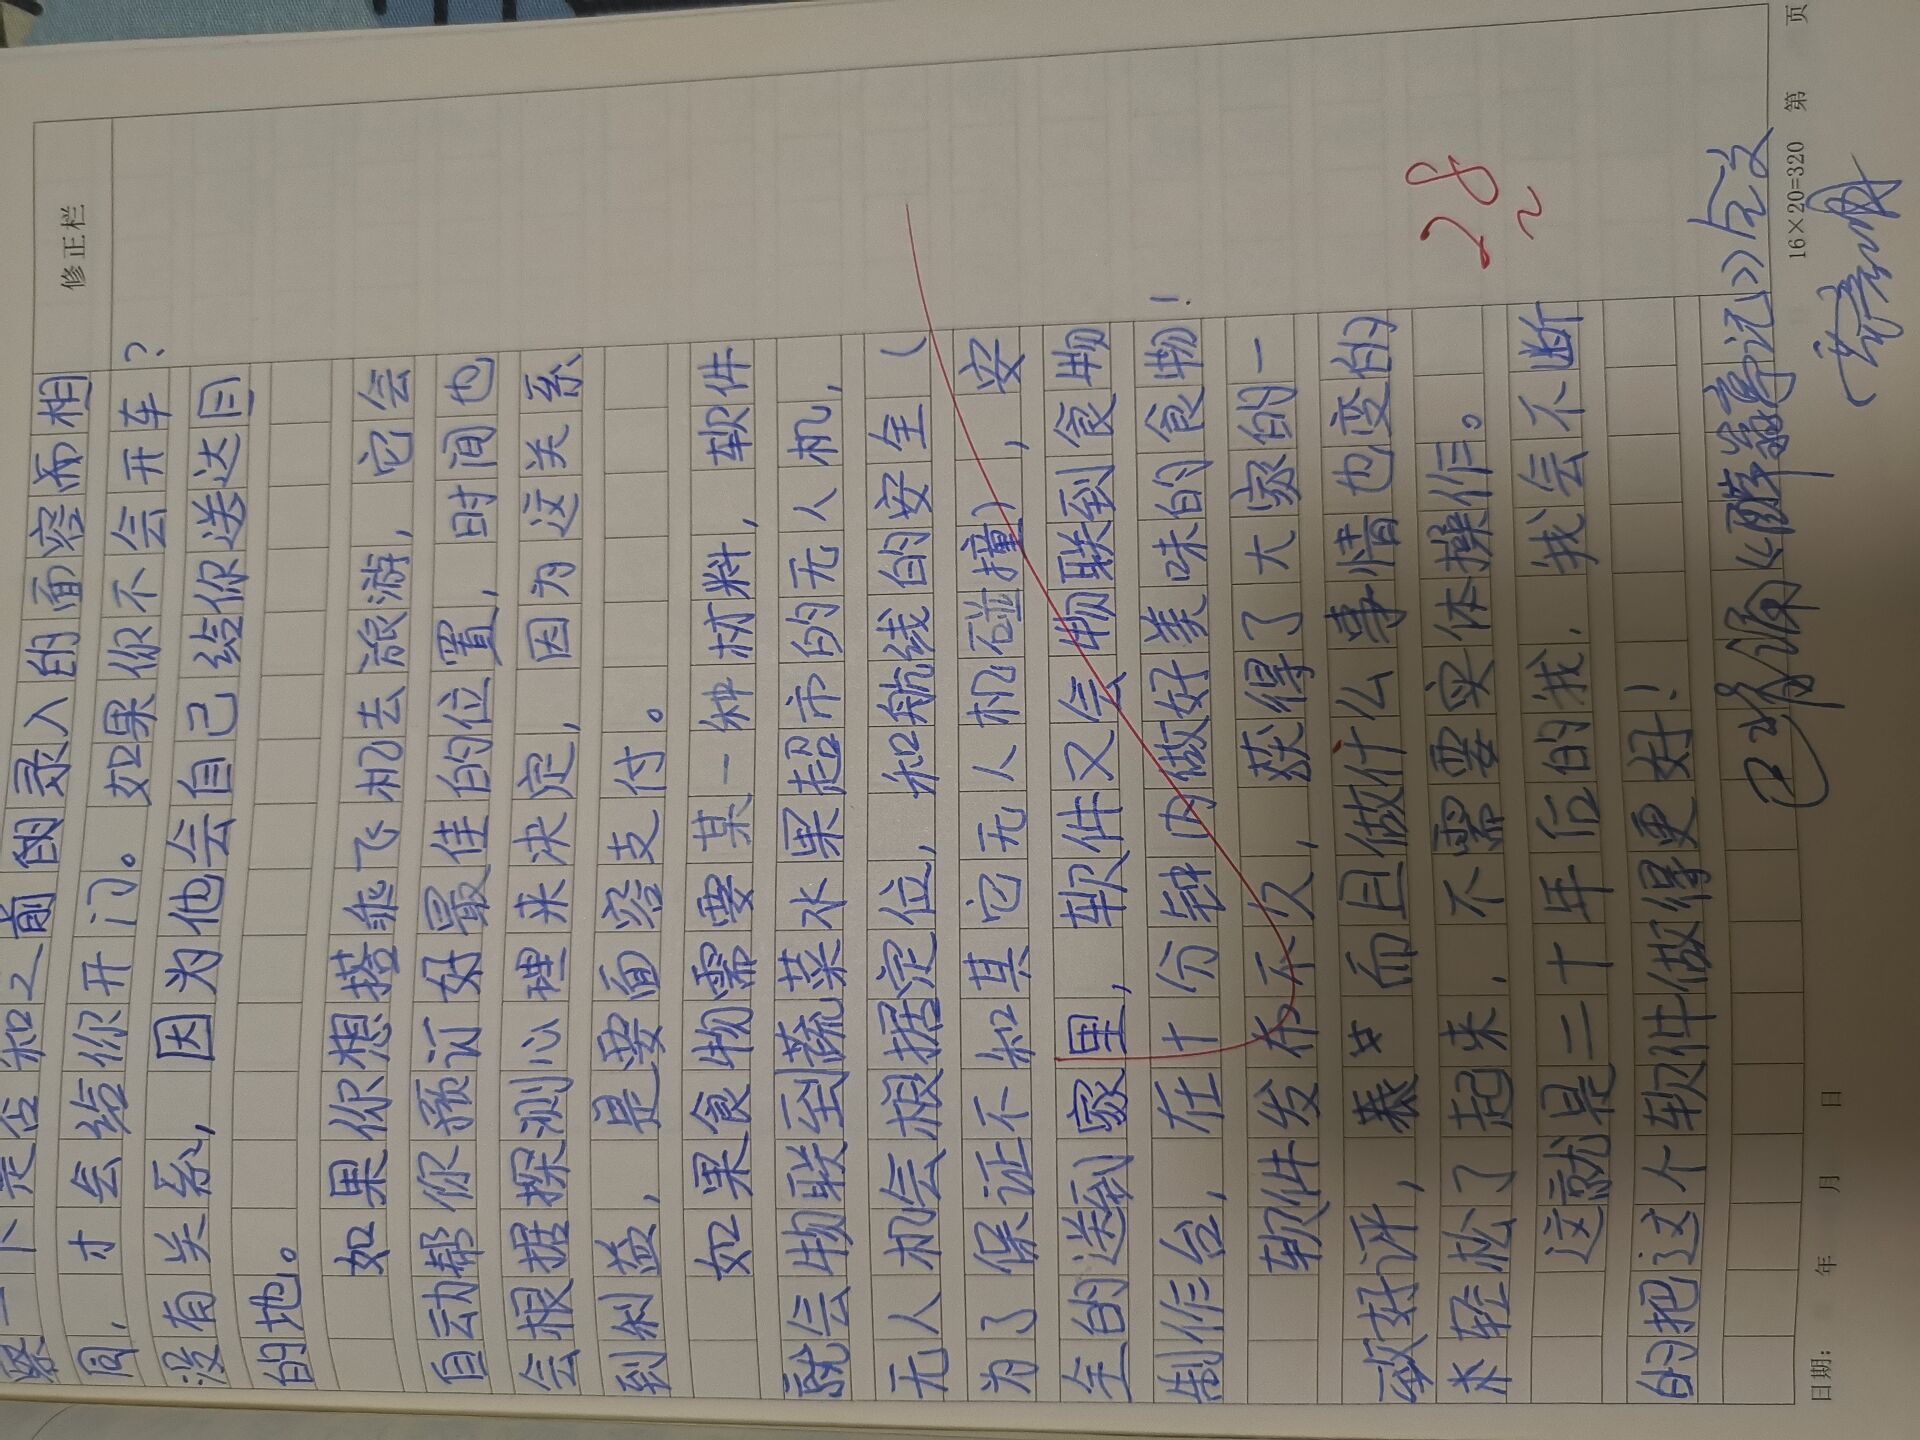 修正栏
察一下是否和之前的录入的面容而相
同，才会给你开门。如果你不会开车？
没有关系，因为他会自己给你送达目
的地。
如果你想搭乘飞机去旅游，它会
自动帮你预订好最佳的位置，时间也
会根据探测心理来决定，因为这关系
到利益，是要面容支付。
如果食物需要某一种材料，软件
就会物联到蔬菜水果超市的无人机，
无人机会根据定位，和航线的安全（
为了保证不和其它无人机碰撞），安
全的送到家里，软件又会物联到食物
制作台，在十分钟内做好美味的食物！
软件发布不久，获得了大家的一
致好评，而且做什么事情也变的
轻松了起来，不需要实体操作。
这就是二十年后的我，我会不断
的把这个软件做得更好！
28
已背《醉翁亭记》全文
16×20=320 第 页
日期： 年 月 日